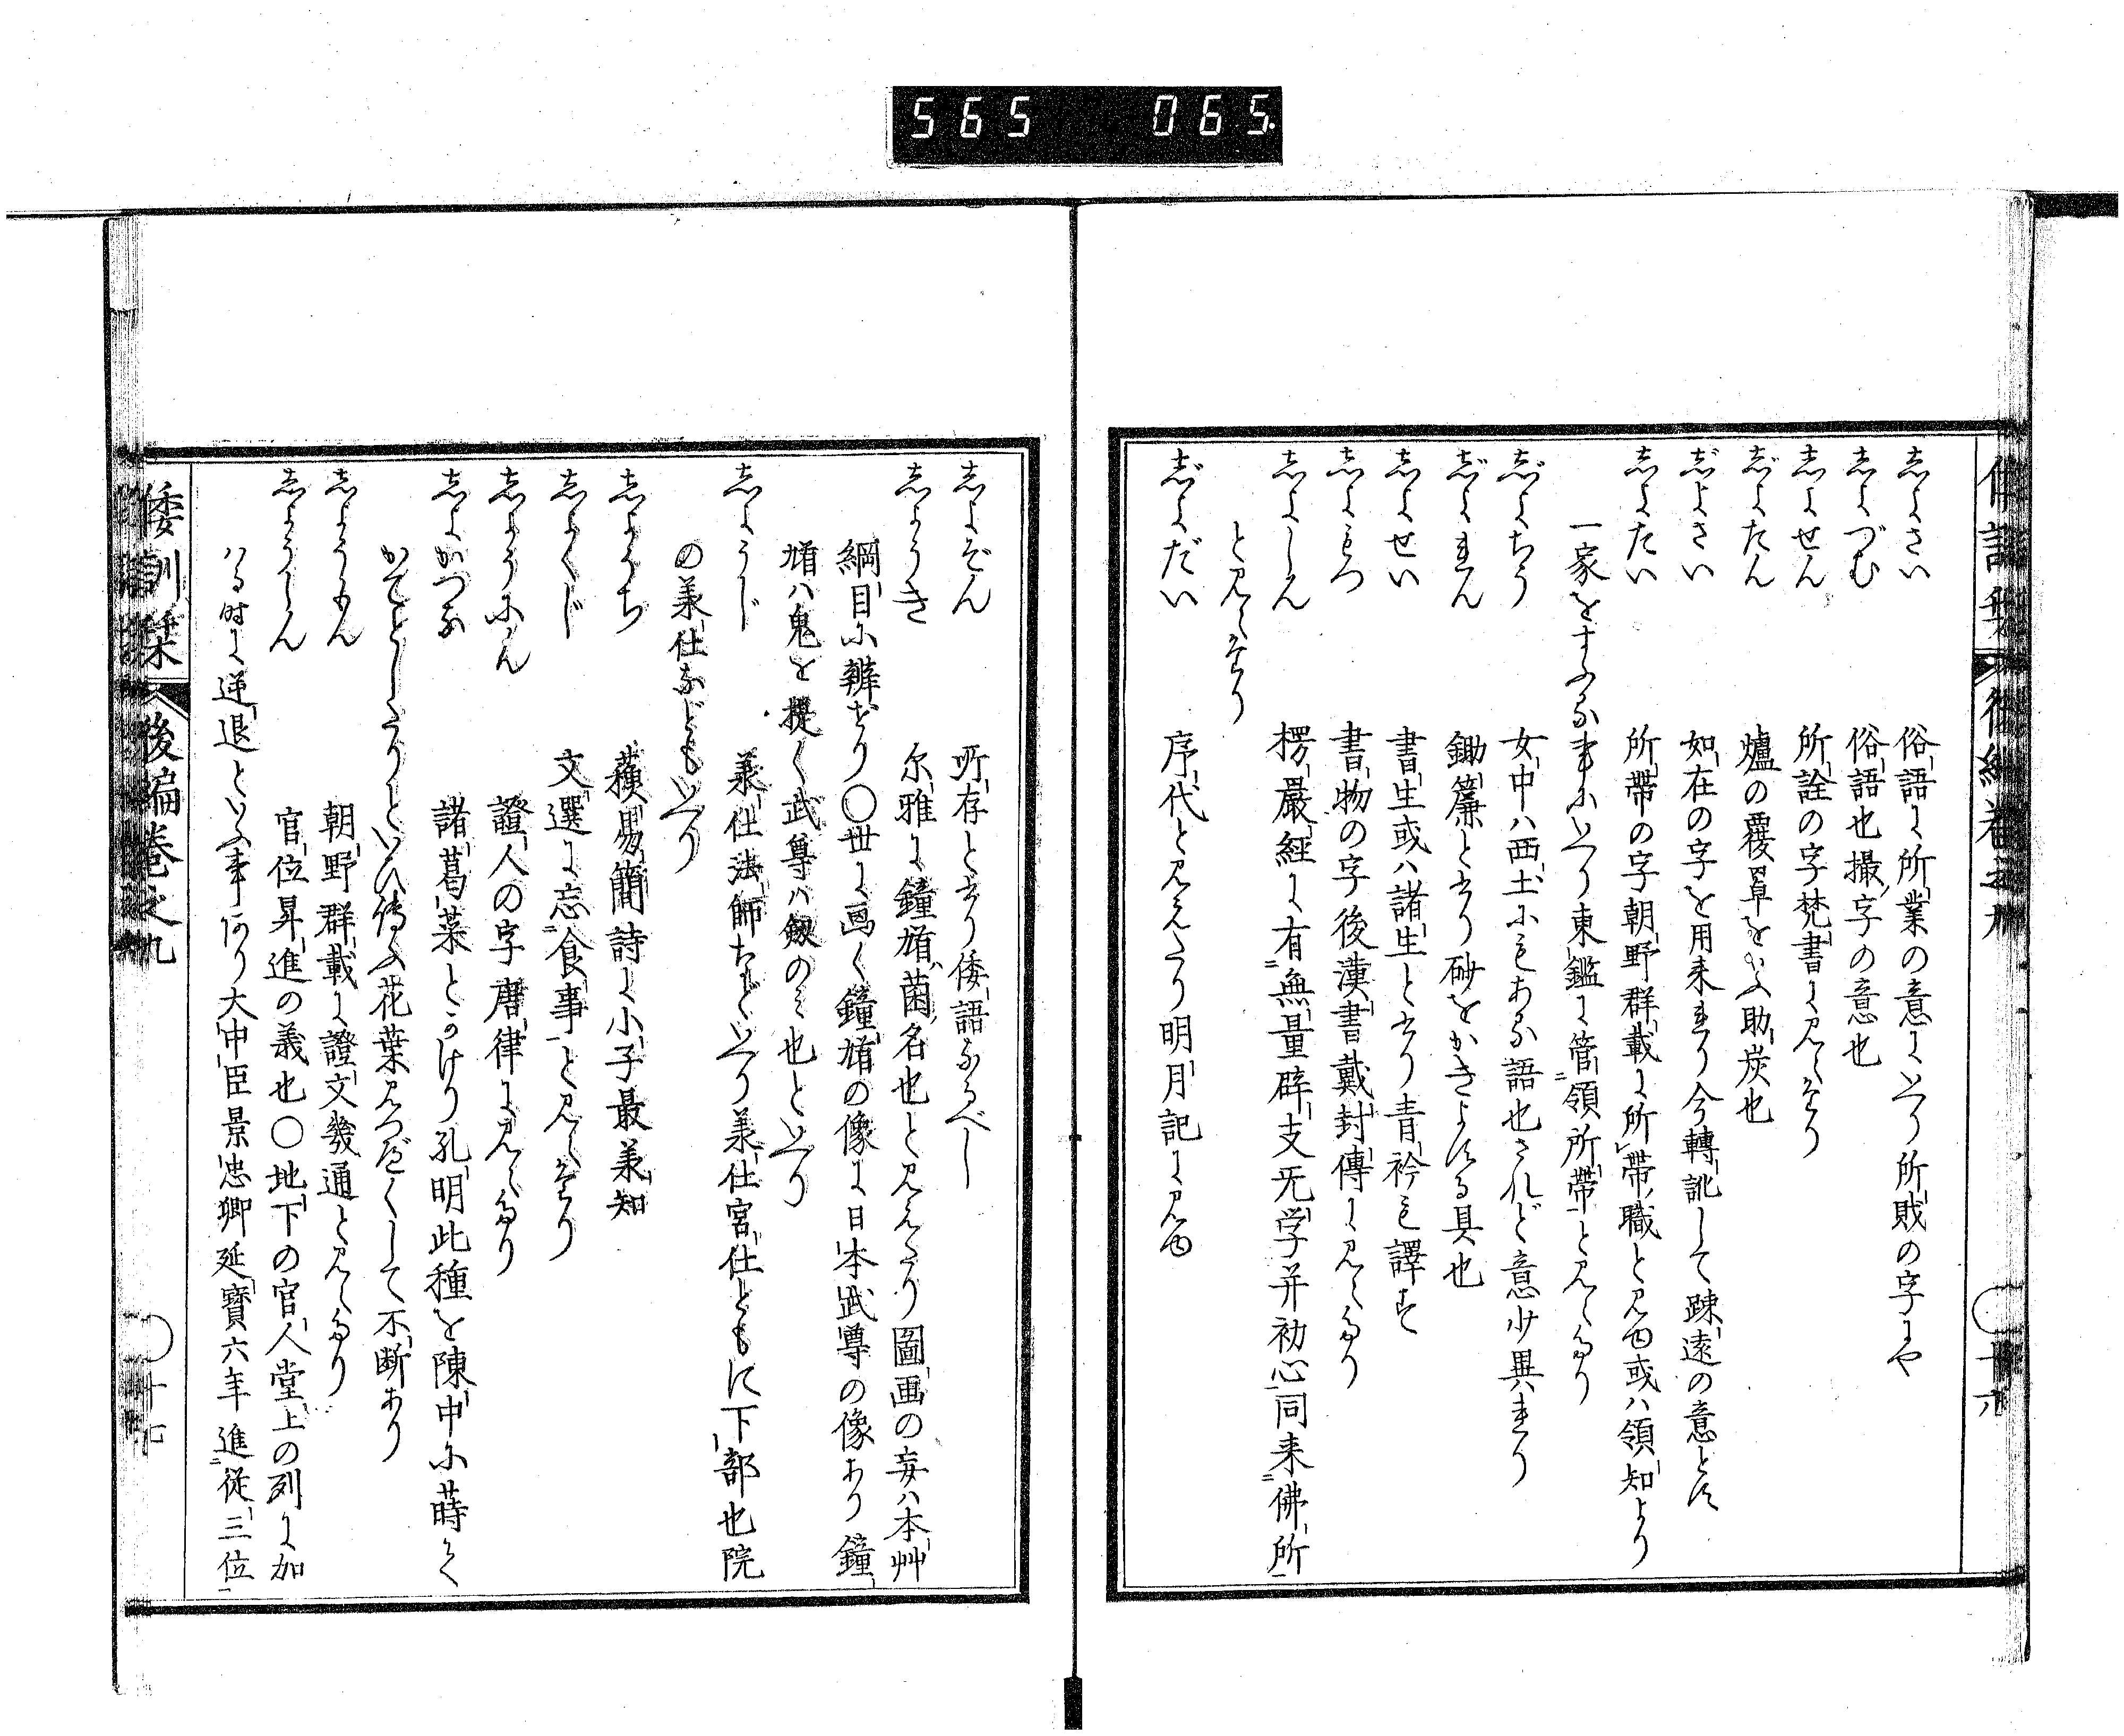 565 065
志よさい 俗語に所業の意にいへり所賎の字にや
志よづむ 俗語也撮字の意也
志よせん 所詮の字梵書に見えたり
志゛よたん 爐の覆罩をいふ助炭也
志゛よさい 如在の字を用来れり今轉訛して疎遠の意とす
志よたい 所帶の字朝野群載に所帶職と見ゆ或ハ領知より
一家をすふる事にいへり東鑑に管領所帶と見えたり
志゛よちう 女中ハ西土にもある語也されど意少異れり
志゛よれん 鋤簾と書り砂をかきよする具也
志よせい 書生或ハ諸生と書り青衿も譯す
志よもつ 書物の字後漢書戴封傳に見えたり
志よしん 楞嚴經に有無量辟支无学并初心同来佛所
と見えたり
志゛よだい 序代と見えたり明月記に見ゆ
志よぞん 所存と書り倭語なるべし
志ようき 尓雅に鐘馗菌名也と見えたり圖画の妄ハ本艸
綱目に辨ぜり〇世に画く鐘馗の像に日本武尊の像あり鐘
馗ハ鬼を提く武尊ハ劔のミ也といへり
志ようじ 兼仕法師などいへり兼仕宮仕ともに下部也院
の兼仕などもいへり
志ようち 蘓易簡詩に小子最兼知
志よくじ 文選に忘食事と見えたり
志ようにん 證人の字唐律に見えたり
志よかつな 諸葛菜とかけり孔明此種を陳中に蒔て
かてとしたりといひ傳ふ花葉見つべくして不断あり
志ようもん 朝野群載に證文幾通と見えたり
志ようしん 官位昇進の義也〇地下の官人堂上の列に加
ハる時に逆退といふ事あり大中臣景忠卿延寶六年進從三位
倭訓栞 後編巻之九 〇十七